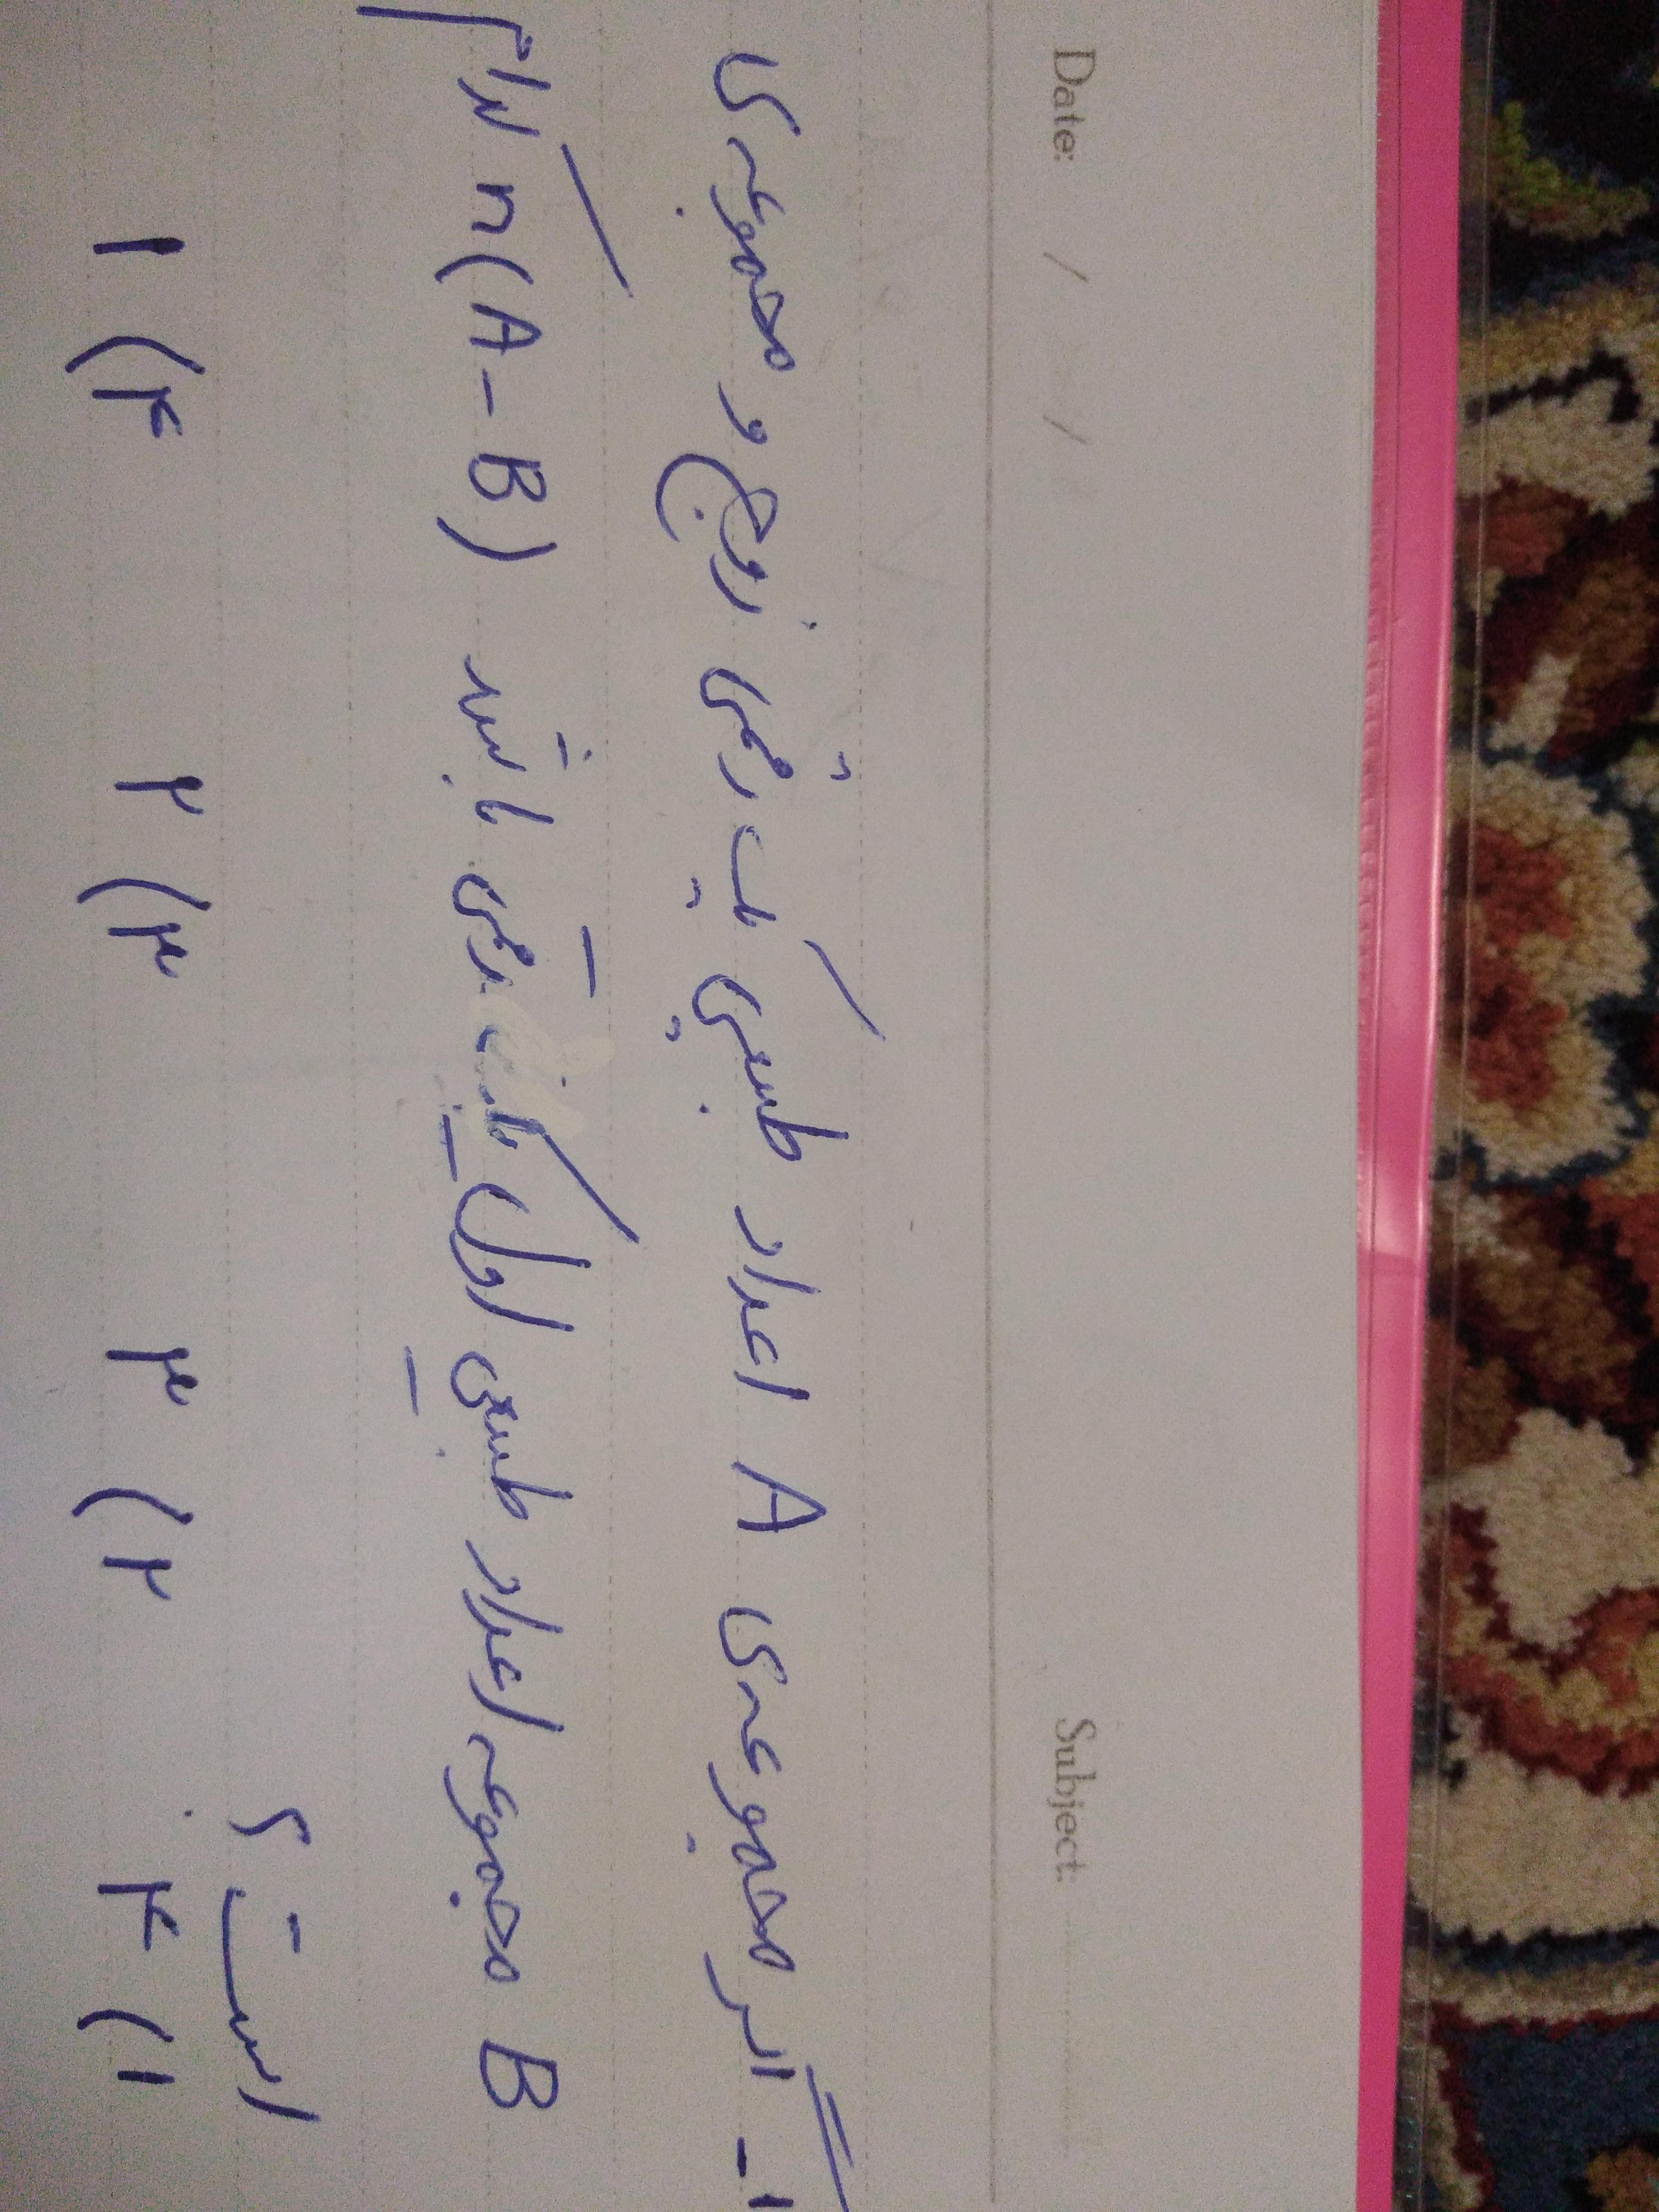 Date: / / Subject:
۱- اگر مجموعه‌ی A اعداد طبیعی یک رقمی زوج و مجموعه‌ی
B مجموعه اعداد طبیعی اول یک رقمی باشد n(A-B) کدام
است؟
۱) ۴ ۲) ۳ ۳) ۲ ۴) ۱